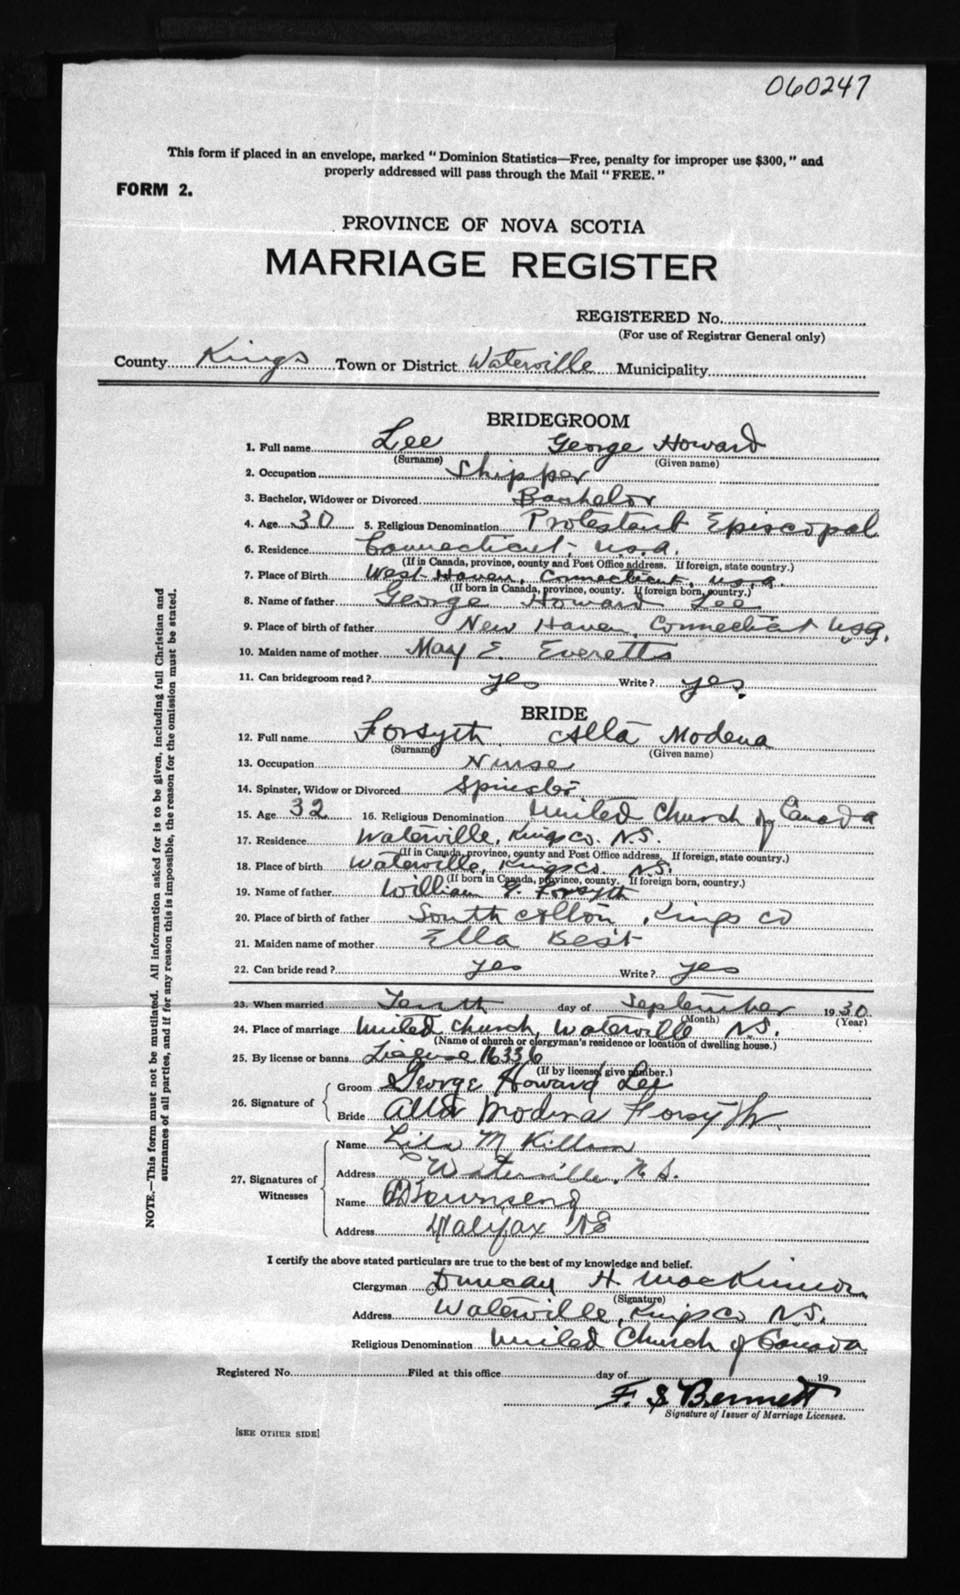 060247
This form if placed in an envelope, marked "Dominion Statistics—Free, penalty for improper use $300," and
properly addressed will pass through the Mail "FREE."
FORM 2.
PROVINCE OF NOVA SCOTIA
MARRIAGE REGISTER
REGISTERED No.
(For use of Registrar General only)
County Kings Town or District Waterville Municipality
BRIDEGROOM
1. Full name Lee George Howard
(Surname) (Given name)
2. Occupation Shipper
3. Bachelor, Widower or Divorced Bachelor
4. Age 30 5. Religious Denomination Protestant Episcopal
6. Residence Connecticut, U.S.A.
(If in Canada, province, county and Post Office address. If foreign, state country.)
7. Place of Birth West Haven, Connecticut, U.S.A.
(If born in Canada, province, county. If foreign born, country.)
8. Name of father George Howard Lee
9. Place of birth of father New Haven, Connecticut USA.
10. Maiden name of mother May E. Everetts
11. Can bridegroom read? yes Write? yes.
BRIDE
12. Full name Forsyth Alla Modena
(Surname) (Given name)
13. Occupation Nurse
14. Spinster, Widow or Divorced Spinster
15. Age 32 16. Religious Denomination United Church of Canada
17. Residence Waterville, Kings Co. N.S.
(If in Canada, province, county and Post Office address. If foreign, state country.)
18. Place of birth Waterville, Kings Co. N.S.
(If born in Canada, province, county. If foreign born, country.)
19. Name of father William Forsyth
20. Place of birth of father South Alton, Kings Co
21. Maiden name of mother Ella Best
22. Can bride read? yes Write? yes
23. When married Tenth day of September 1930
(Month) (Year)
24. Place of marriage United Church, Waterville N.S.
(Name of church or clergyman's residence or location of dwelling house.)
25. By license or banns License 16336
(If by license, give number.)
26. Signature of
Groom George Howard Lee
Bride Alla Modena Forsyth.
27. Signatures of Witnesses
Name Lila M Killam
Address Waterville, N.S.
Name Townsend
Address Halifax NS
I certify the above stated particulars are true to the best of my knowledge and belief.
Clergyman Duncan H. MacKinnon
(Signature)
Address Waterville, Kings Co N.S.
Religious Denomination United Church of Canada
Registered No. Filed at this office day of 19
F. S Bennett
Signature of Issuer of Marriage Licenses.
[SEE OTHER SIDE]
NOTE.—This form must not be mutilated. All information asked for is to be given, including full Christian and
surnames of all parties, and if for any reason this is impossible, the reason for the omission must be stated.